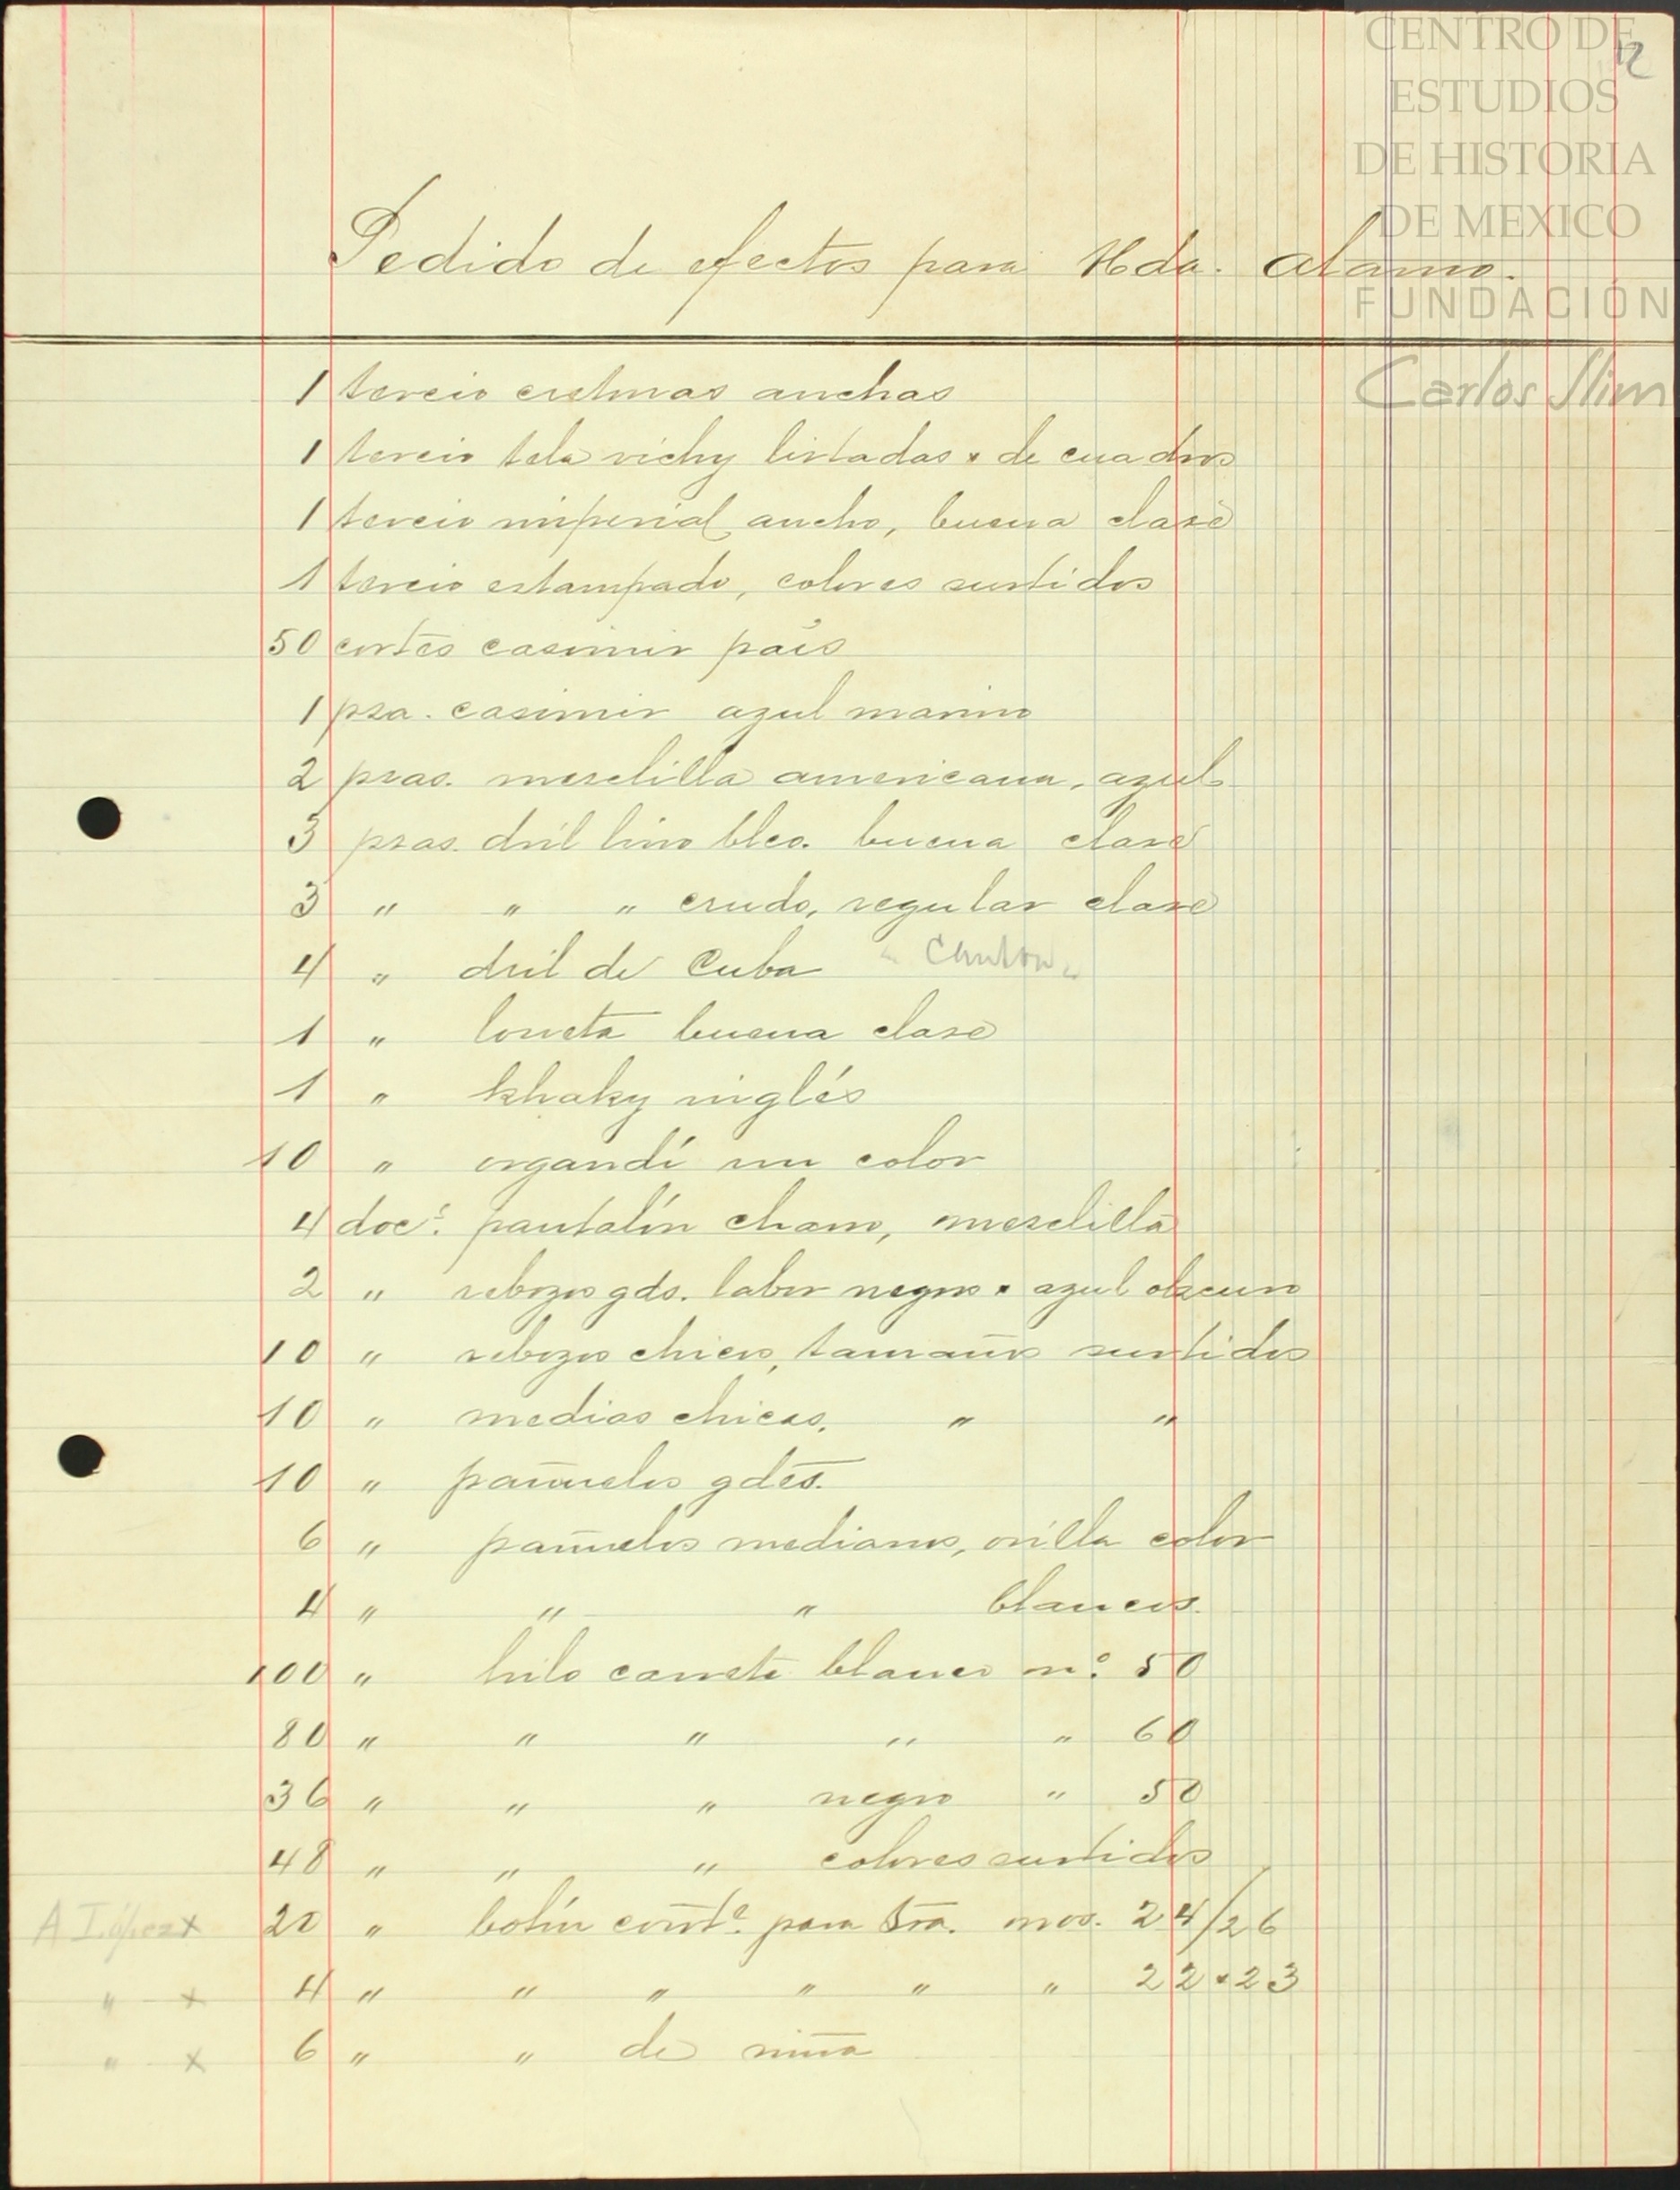 CENTRO DE
ESTUDIOS
DE HISTORIA
DE MEXICO
FUNDACIÓN
Carlos Slim
12
Pedido de efectos para Hda. Alamo.
1 tercio anchas
1 tercio tela vichy listadas y de cuadros
1 tercio imperial ancho, buena clase
1 tercio estampado, colores surtidos
50 cortes casimir país
1 pza. casimir azul marino
2 pzas. mezclilla americana, azul
3 pzas. dril lino blco. buena clase
3 " " " crudo, regular clase
4 " dril de Cuba
1 " loneta buena clase
1 " khaky inglés
10 " organdí un color
4 docs. pantalón charro, mezclilla
2 " rebozos gds. labor negros y azul obscuro
10 " rebozos chicos, tamaños surtidos
10 " medias chicas, " "
10 " pañuelos gdes.
6 " pañuelos medianos, orilla color
4 " " " blancos.
100 " hilo carrete blanco no. 50
80 " " " " " 60
36 " " " negro " 50
48 " " " colores surtidos
A López x 20 " botín para Sra. nos. 24/26
" x 4 " " " " " " 22 y 23
" x 6 " " de niña